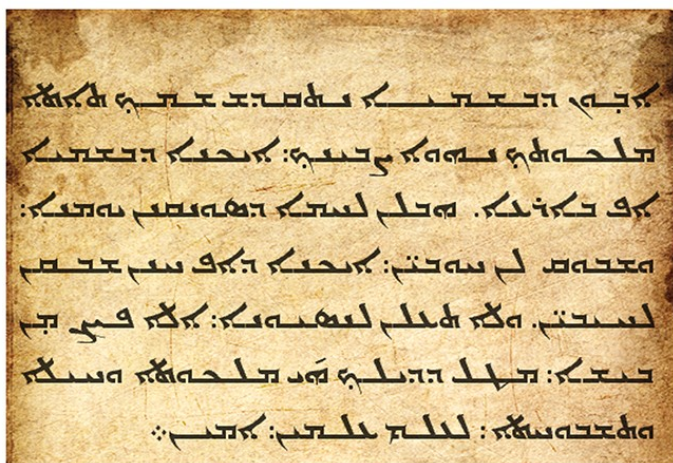 ܐܒܘܢ ܕܒܫܡܝܐ ܢܬܩܕܫ ܫܡܟ ܬܐܬܐ
ܡܠܟܘܬܟ ܢܗܘܐ ܨܒܝܢܟ: ܐܝܟܢܐ ܕܒܫܡܝܐ
ܐܦ ܒܐܪ̈ܥܐ. ܗܒܠܢ ܠܚܡܐ ܕܣܘܢܩܢܢ ܝܘܡܢܐ:
ܘܫܒܘܩ ܠܢ ܚܘܒܝ̈ܢ: ܐܝܟܢܐ ܕܐܦ ܚܢܢ ܫܒܩܢ
ܠܚܝܒܝ̈ܢ. ܘܠܐ ܬܥܠܢ ܠܢܣܝܘܢܐ: ܐܠܐ ܦܨܢ ܡ̣ܢ
ܒܝܫܐ: ܡܛܠ ܕܕܝܠܟ ܗ̇ܝ ܡܠܟܘܬܐ ܘܚܝܠܐ
ܘܬܫܒܘܚܬܐ: ܠܥܠܡ ܥܠܡܝܢ: ܐܡܝܢ܀